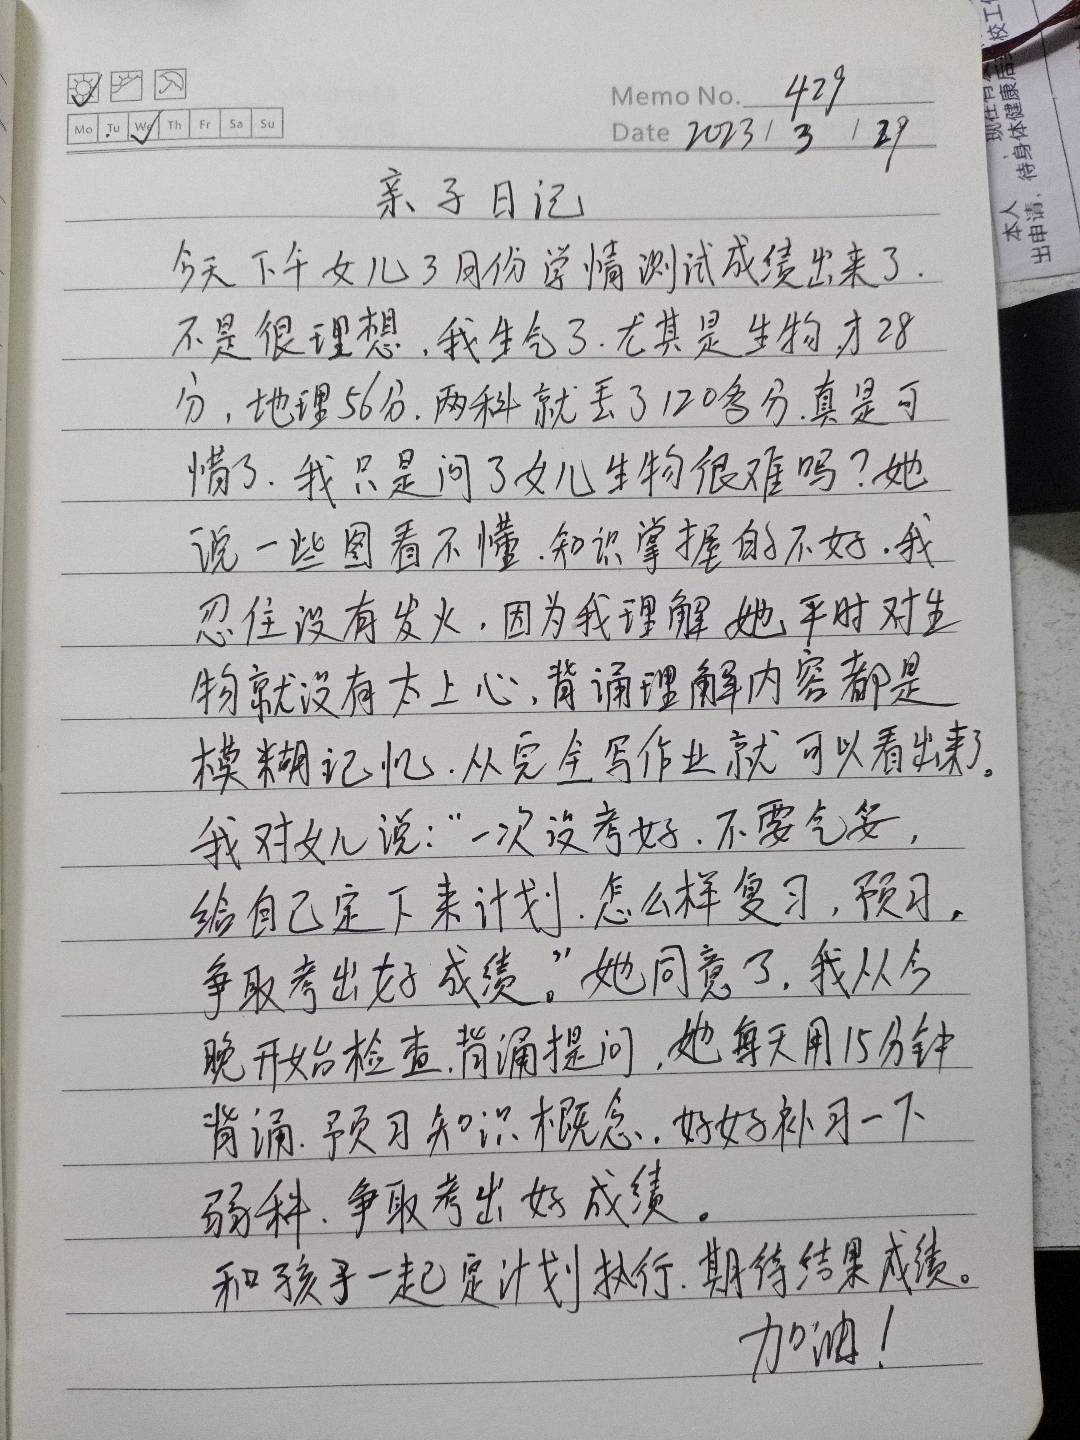 Memo No. 429
Mo Tu We Th Fr Sa Su
Date 2023 / 3 / 29
亲子日记
今天下午女儿3月份学情测试成绩出来了.
不是很理想,我生气了.尤其是生物,才28
分,地理56分.两科就丢了120多分.真是可
惜了.我只是问了女儿生物很难吗?她
说一些图看不懂.知识掌握的不好.我
忍住没有发火,因为我理解她平时对生
物就没有太上心,背诵理解内容都是
模糊记忆.从完全写作业就可以看出来了。
我对女儿说:“一次没考好.不要气妥,
给自己定下来计划.怎么样复习,预习,
争取考出好成绩。”她同意了.我从今
晚开始检查.背诵提问,她每天用15分钟
背诵.预习知识概念.好好补习一下
弱科.争取考出好成绩。
和孩子一起定计划执行.期待结果成绩。
加油!
本人
出申请,待身体健康后